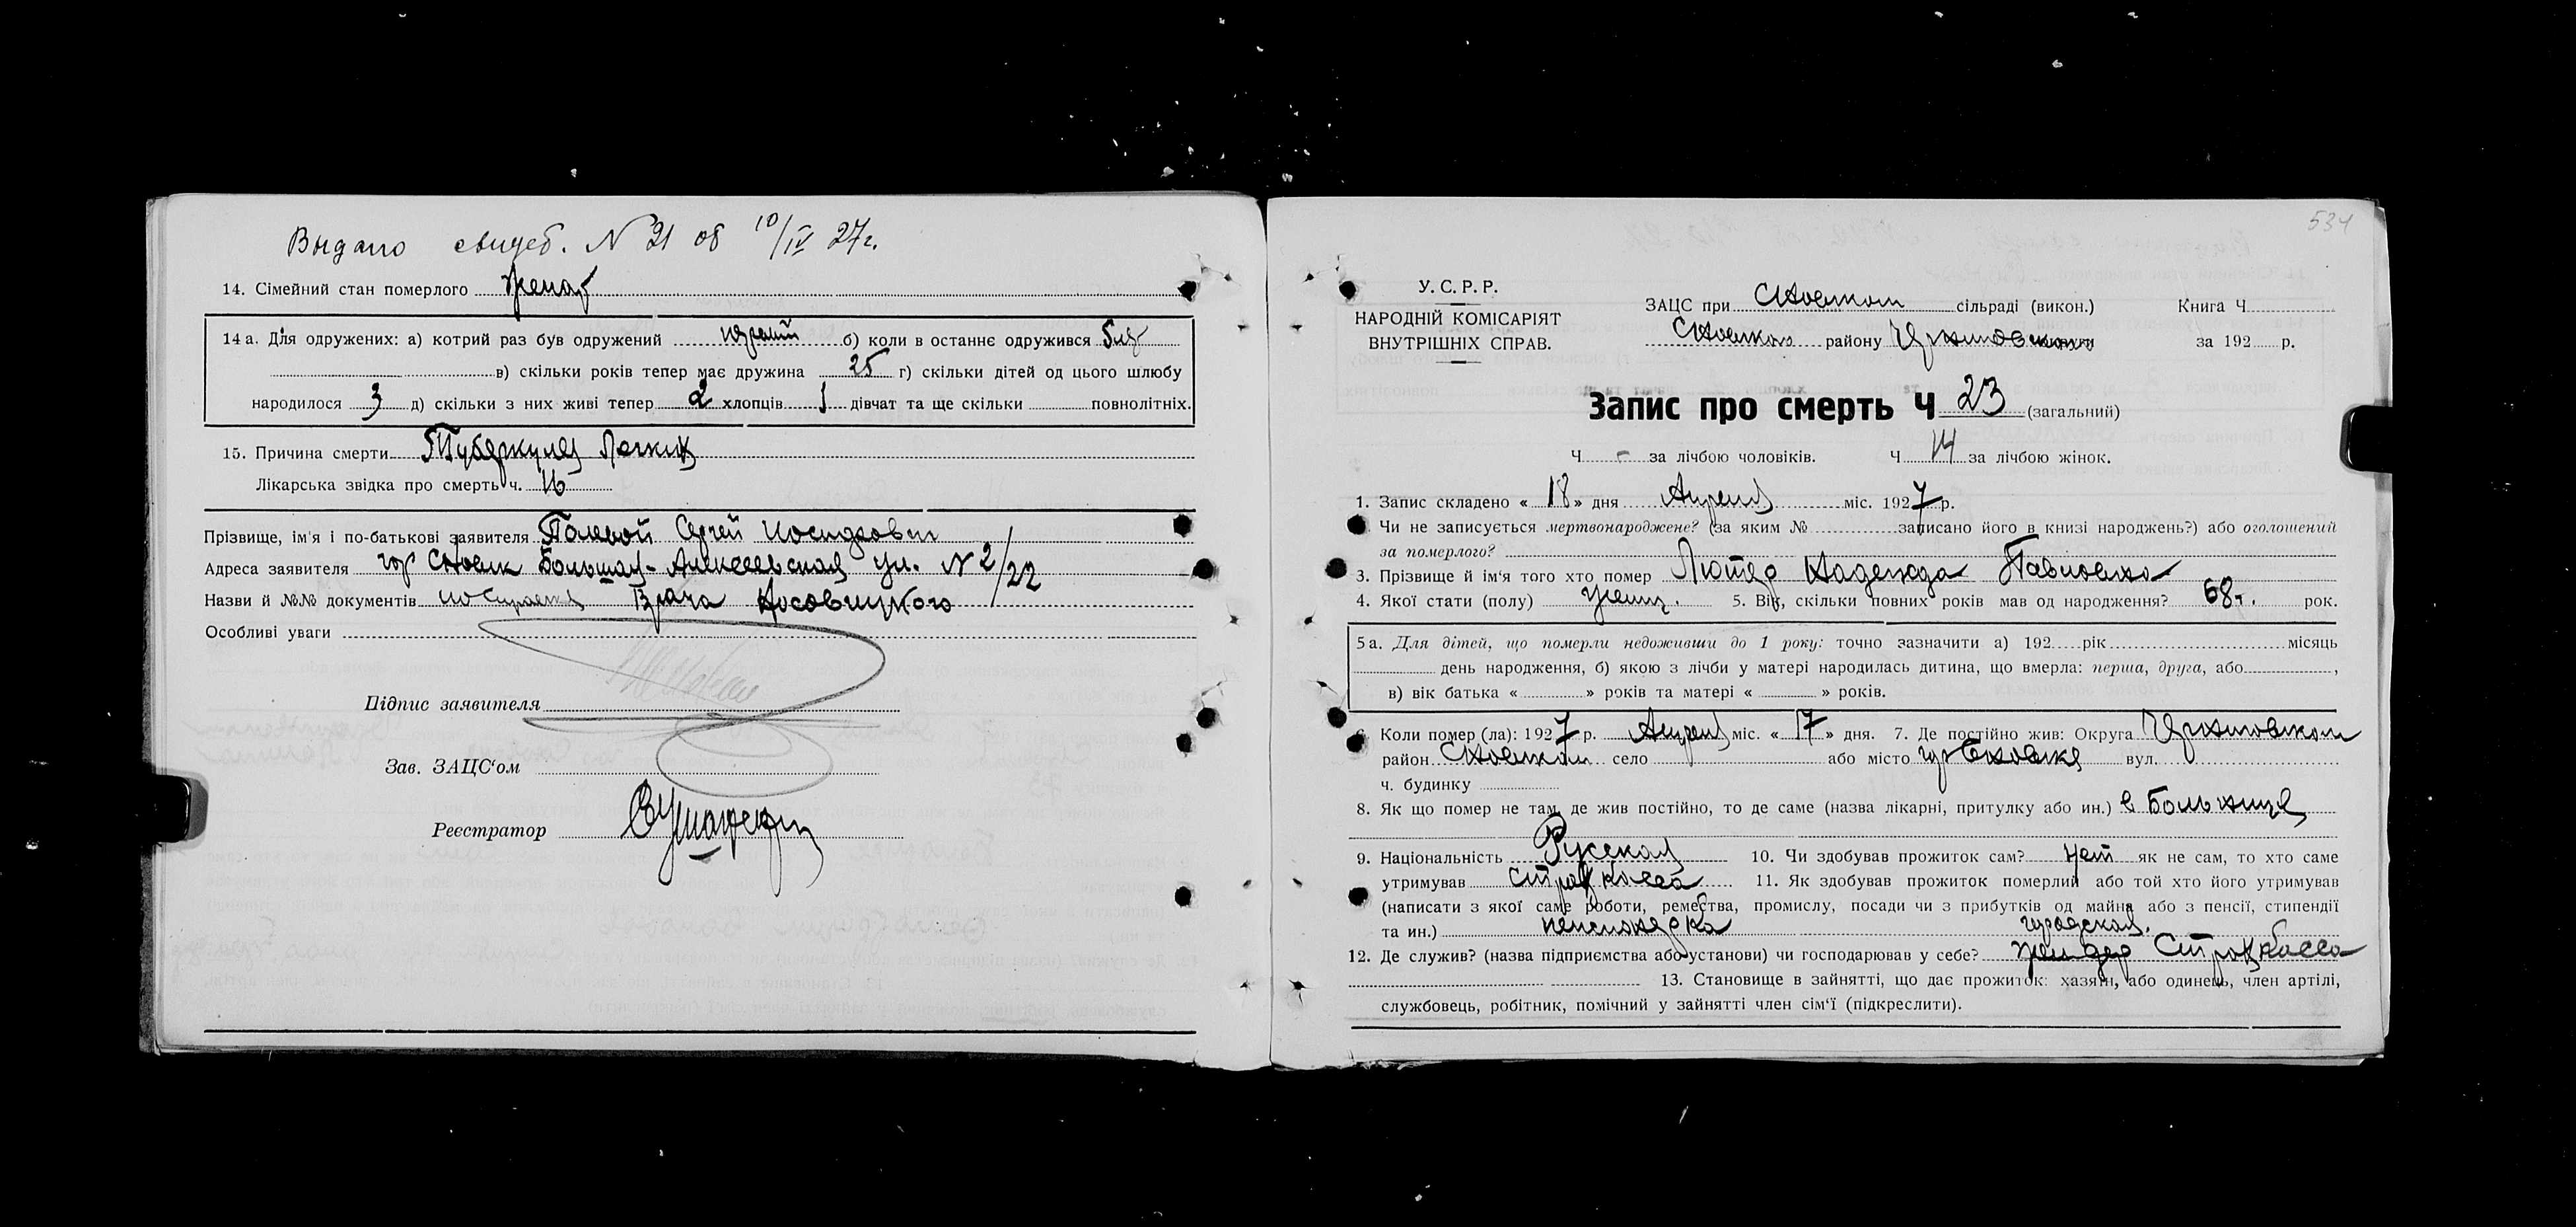 Выдано свидет. N 21 об 10/IV 27г.
14. Сімейний стан померлого Женат
14 а. Для одружених: а) котрий раз був одружений первый б) коли в останнє одружився
в) скільки років тепер має дружина 25 г) скільки дітей од цього шлюбу
народилося 3 д) скільки з них живі тепер 2 хлопців 1 дівчат та ще скільки повнолітніх.
15. Причина смерти Туберкулез Легких
Лікарська звідка про смерть ч. 16
Прізвище, ім'я і по-батькові заявителя Полевой Сергей Иосифович
Адреса заявителя гор Сновск Большая-Алексеевская ул. N 2/22
Назви й №№ документів Врача Носовицкого
Особливі уваги
Підпис заявителя
Зав. ЗАЦС'ом
Реєстратор
534
У. С. Р. Р.
НАРОДНІЙ КОМІСАРІЯТ
ВНУТРІШНІХ СПРАВ.
ЗАЦС при Сновском сільраді (викон.) Книга Ч
Сновского району Черниговского за 192 р.
Запис про смерть Ч 23 (загальний)
Ч - за лічбою чоловіків. Ч 14 за лічбою жінок.
1. Запис складено « 18 » дня Апреля міс. 1927 р.
Чи не записується мертвонароджене? (за яким № записано його в книзі народжень?) або оголошений
за померлого?
3. Прізвище й ім'я того хто помер Лютер Надежда Павловна
4. Якої стати (полу) женщ. 5. Вік, скільки повних років мав од народження? 68 г. рок.
5 а. Для дітей, що померли недоживши до 1 року: точно зазначити а) 192 рік місяць
день народження, б) якою з лічби у матері народилась дитина, що вмерла: перша, друга, або ,
в) вік батька « » років та матері « » років.
Коли помер (ла): 1927 р. Апреля міс. « 17 » дня. 7. Де постійно жив: Округа Черниговском
район Сновском село або місто гор Сновске вул.
ч. будинку
8. Як що помер не там, де жив постійно, то де саме (назва лікарні, притулку або ин.) в Больнице
9. Національність Русская 10. Чи здобував прожиток сам? нет як не сам, то хто саме
утримував страхкасса 11. Як здобував прожиток померлий або той хто його утримував
(написати з якої саме роботи, ремества, промислу, посади чи з прибутків од майна або з пенсії, стипендії
та ин.) пенсионерка городская.
12. Де служив? (назва підприємства або установи) чи господарював у себе? Страхкасса
13. Становище в зайнятті, що дає прожиток: хазяїн, або одинець, член артілі,
службовець, робітник, помічний у зайнятті член сім'ї (підкреслити).